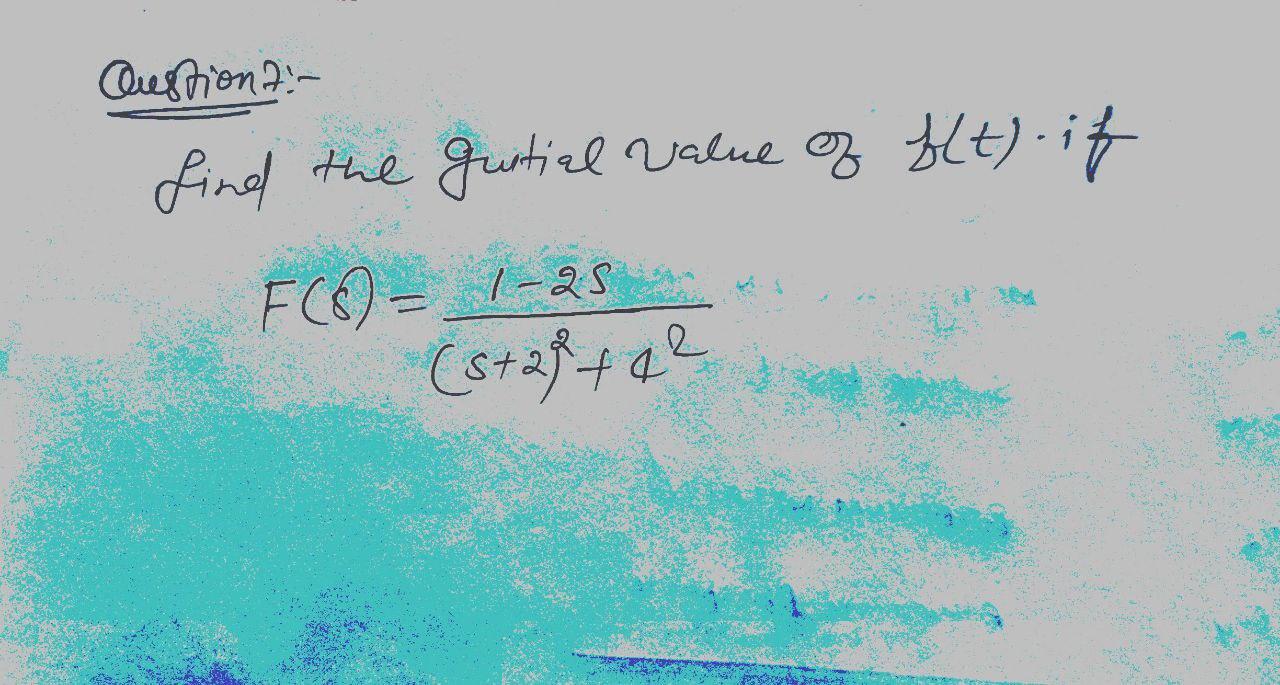 Question 7:-
find the Initial value of f(t). if
F(s) = 1-2s
(s+2)² + 4²